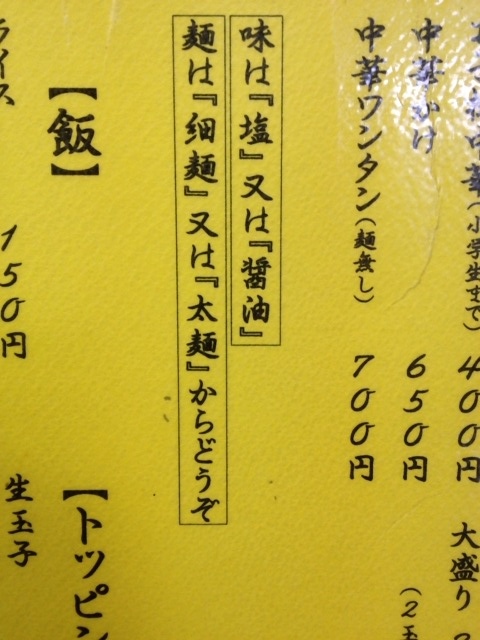 中華(小学生まで) 400円
大盛り
中華かけ 650円
(2玉
中華ワンタン(麺無し) 700円
味は『塩』又は『醤油』
麺は『細麺』又は『太麺』からどうぞ
【飯】
【トッピン
ライス 150円
生玉子